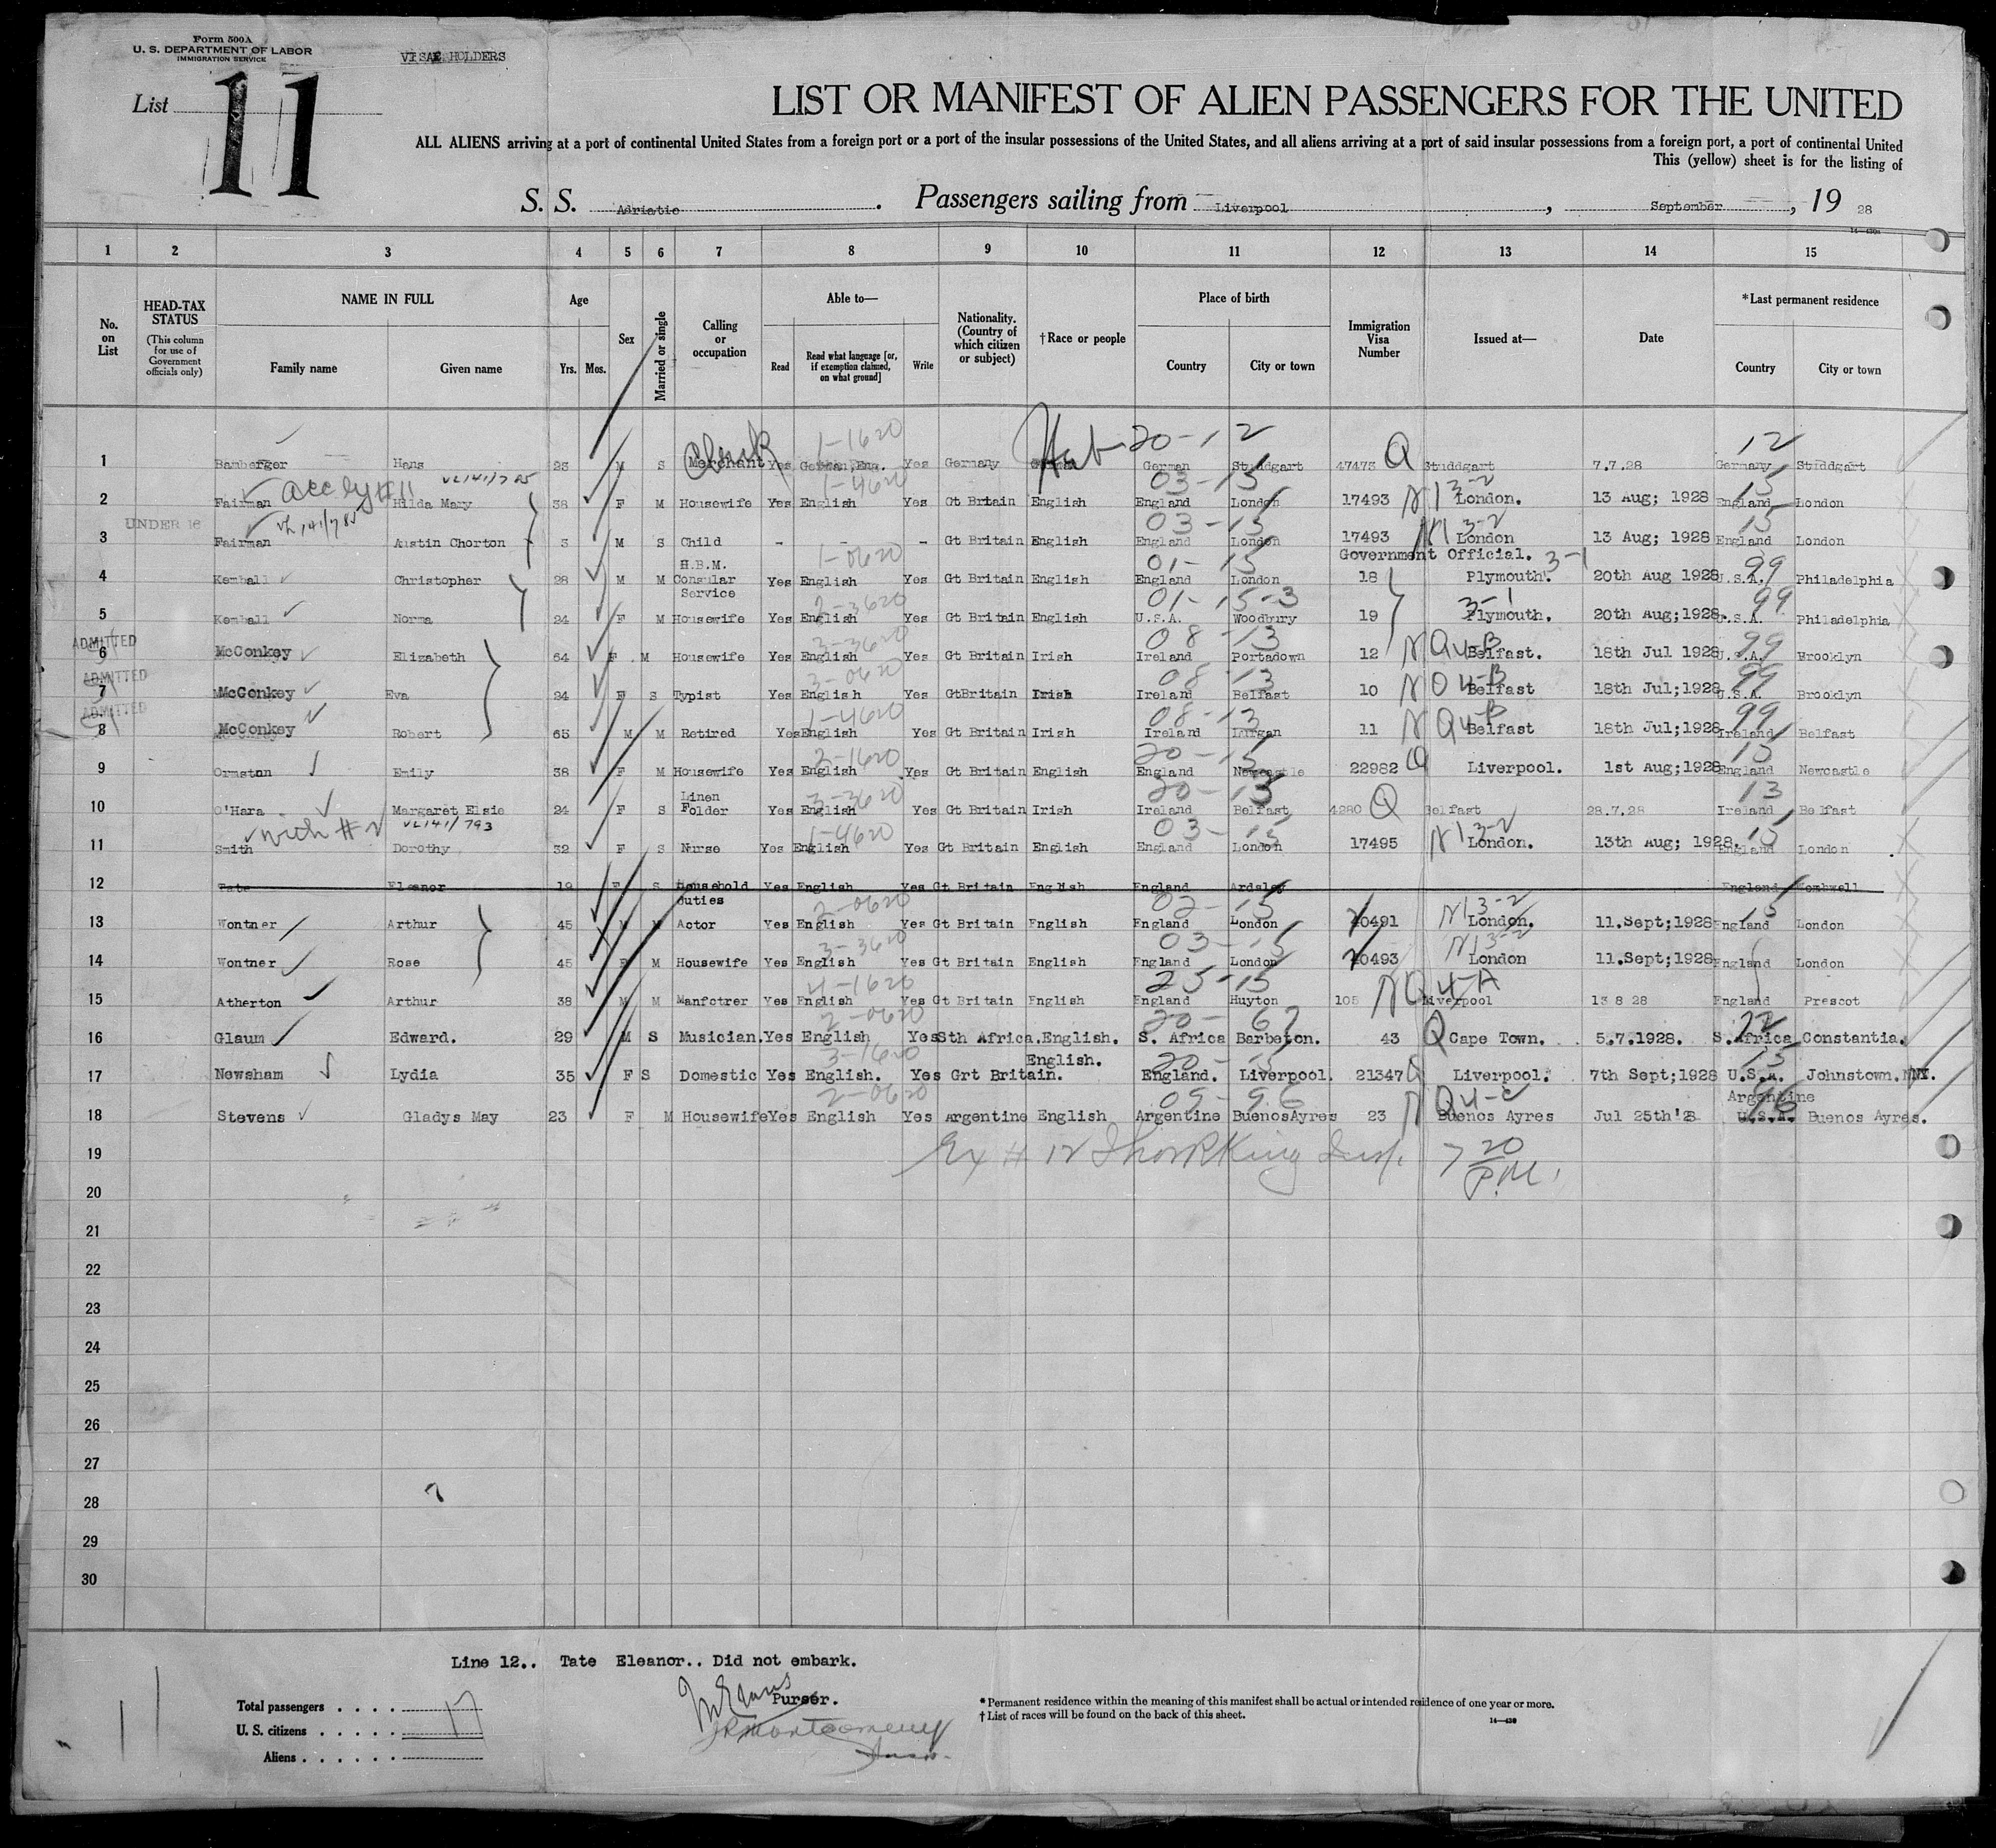 Form 500A
U. S. DEPARTMENT OF LABOR
IMMIGRATION SERVICE
VISAE HOLDERS
List 11
LIST OR MANIFEST OF ALIEN PASSENGERS FOR THE UNITED
ALL ALIENS arriving at a port of continental United States from a foreign port or a port of the insular possessions of the United States, and all aliens arriving at a port of said insular possessions from a foreign port, a port of continental United
This (yellow) sheet is for the listing of
S. S. Adriatic. Passengers sailing from Liverpool, September, 19 28
14-430a
1 2 3 4 5 6 7 8 9 10 11 12 13 14 15
No. on List
HEAD-TAX STATUS
(This column for use of Government officials only)
NAME IN FULL
Family name Given name
Age
Yrs. Mos.
Sex
Married or single
Calling or occupation
Able to—
Read Read what language [or, if exemption claimed, on what ground] Write
Nationality. (Country of which citizen or subject)
†Race or people
Place of birth
Country City or town
Immigration Visa Number
Issued at—
Date
*Last permanent residence
Country City or town
Clerk 1-1620 Heb 20-12 12
1 Bamberger Hans 23 M S Merchant Yes German, Eng. Yes Germany German Studdgart 47473 Q Studdgart 7.7.28 Germany Studdgart
accby #11 VL141/785 1-4620 03-15 3-2 15
2 Fairman Hilda Mary 38 F M Housewife Yes English Yes Gt Britain English England London 17493 N1 London. 13 Aug; 1928 England London
UNDER 16 VL141/785 03-15 3-2 15
3 Fairman Austin Chorton 3 M S Child - - - Gt Britain English England London 17493 N1 London 13 Aug; 1928 England London
1-0620 01-15 Government Official. 3-1 99
4 Kemball Christopher 28 M M H.B.M. Consular Service Yes English Yes Gt Britain English England London 18 Plymouth. 20th Aug 1928 U.S.A. Philadelphia
2-3620 01-15-3 3-1 99
5 Kemball Norma 24 F M Housewife Yes English Yes Gt Britain English U.S.A. Woodbury 19 Plymouth. 20th Aug;1928. U.S.A. Philadelphia
ADMITTED 3-3620 08-13 NQ 4-B 99
6 McConkey Elizabeth 64 F M Housewife Yes English Yes Gt Britain Irish Ireland Portadown 12 Belfast. 18th Jul 1928 U.S.A. Brooklyn
ADMITTED 3-0620 08-13 NQ 4-B 99
7 McConkey Eva 24 F S Typist Yes English Yes GtBritain Irish Ireland Belfast 10 Belfast 18th Jul;1928 U.S.A. Brooklyn
ADMITTED 1-4620 08-13 NQ 4-B 99
8 McConkey Robert 65 M M Retired Yes English Yes Gt Britain Irish Ireland Lurgan 11 Belfast 18th Jul;1928 Ireland Belfast
2-1620 20-15 15
9 Ormston Emily 38 F M Housewife Yes English Yes Gt Britain English England Newcastle 22982 Q Liverpool. 1st Aug;1928 England Newcastle
3-3620 20-13 13
10 O'Hara Margaret Elsie 24 F S Linen Folder Yes English Yes Gt Britain Irish Ireland Belfast 4280 Q Belfast 28.7.28 Ireland Belfast
with #2 VL141/793 1-4620 03-15 3-2 15
11 Smith Dorothy 32 F S Nurse Yes English Yes Gt Britain English England London 17495 N1 London. 13th Aug; 1928. England London
12 Tate Eleanor 19 F S Household duties Yes English Yes Gt Britain English England Ardsley England Wombwell
2-0620 02-15 3-2 15
13 Wontner Arthur 45 M M Actor Yes English Yes Gt Britain English England London 20491 N1 London. 11.Sept;1928 England London
3-3620 03-15 3-2
14 Wontner Rose 45 F M Housewife Yes English Yes Gt Britain English England London 20493 N1 London 11.Sept;1928 England London
4-1620 25-15 NQ 4-A
15 Atherton Arthur 38 M M Manfctrer Yes English Yes Gt Britain English England Huyton 105 Liverpool 13 8 28 England Prescot
2-0620 20-67 72
16 Glaum Edward. 29 M S Musician. Yes English Yes Sth Africa. English. S. Africa Barbeton. 43 Q Cape Town. 5.7.1928. S. Africa Constantia.
3-1620 20-15 15
17 Newsham Lydia 35 F S Domestic Yes English. Yes Grt Britain. English. England. Liverpool. 21347 Q Liverpool. 7th Sept;1928 U.S.A. Johnstown. NY.
2-0620 09-96 NQ 4-C Argentine 96
18 Stevens Gladys May 23 F M Housewife Yes English Yes Argentine English Argentine BuenosAyres 23 Buenos Ayres Jul 25th'28 U.S.A. Buenos Ayres.
19 Ex # 12 King Insp. 7 20 P.M.
20
21
22
23
24
25
26
27
28
29
30
Line 12.. Tate Eleanor.. Did not embark.
Purser.
Total passengers . . . . 17
U. S. citizens . . . . .
Aliens . . . . . .
*Permanent residence within the meaning of this manifest shall be actual or intended residence of one year or more.
†List of races will be found on the back of this sheet.
14-430